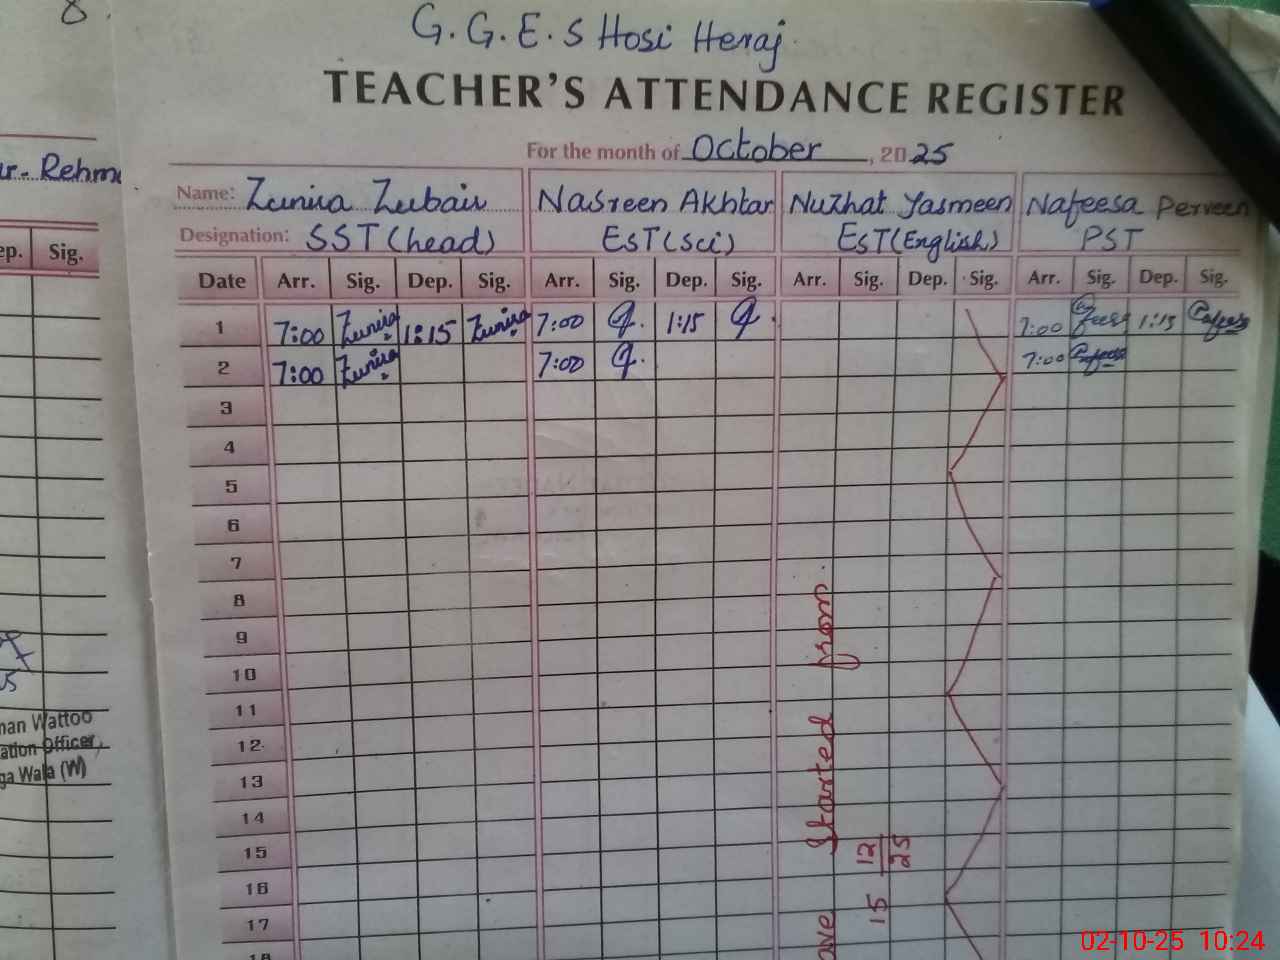 8.
G.G.E.S Hosi Heraj.
TEACHER'S ATTENDANCE REGISTER
For the month of October, 2025
Name: Zunira Zubair Nasreen Akhtar Nuzhat Yasmeen Nafeesa Perveen
Designation: SST (head) EST (sci) EST (English) PST
Date Arr. Sig. Dep. Sig. Arr. Sig. Dep. Sig. Arr. Sig. Dep. Sig. Arr. Sig. Dep. Sig.
1 7:00 Zunira 1:15 Zunira 7:00 1:15 7:00 1:15
2 7:00 Zunira 7:00 7:00
3
4
5
6
7
8
9
10
11
12
13
14
15
16
17
18
Started from
15 12/25
Sig.
man Wattoo
ation Officer,
ga Wala (W)
02-10-25 10:24